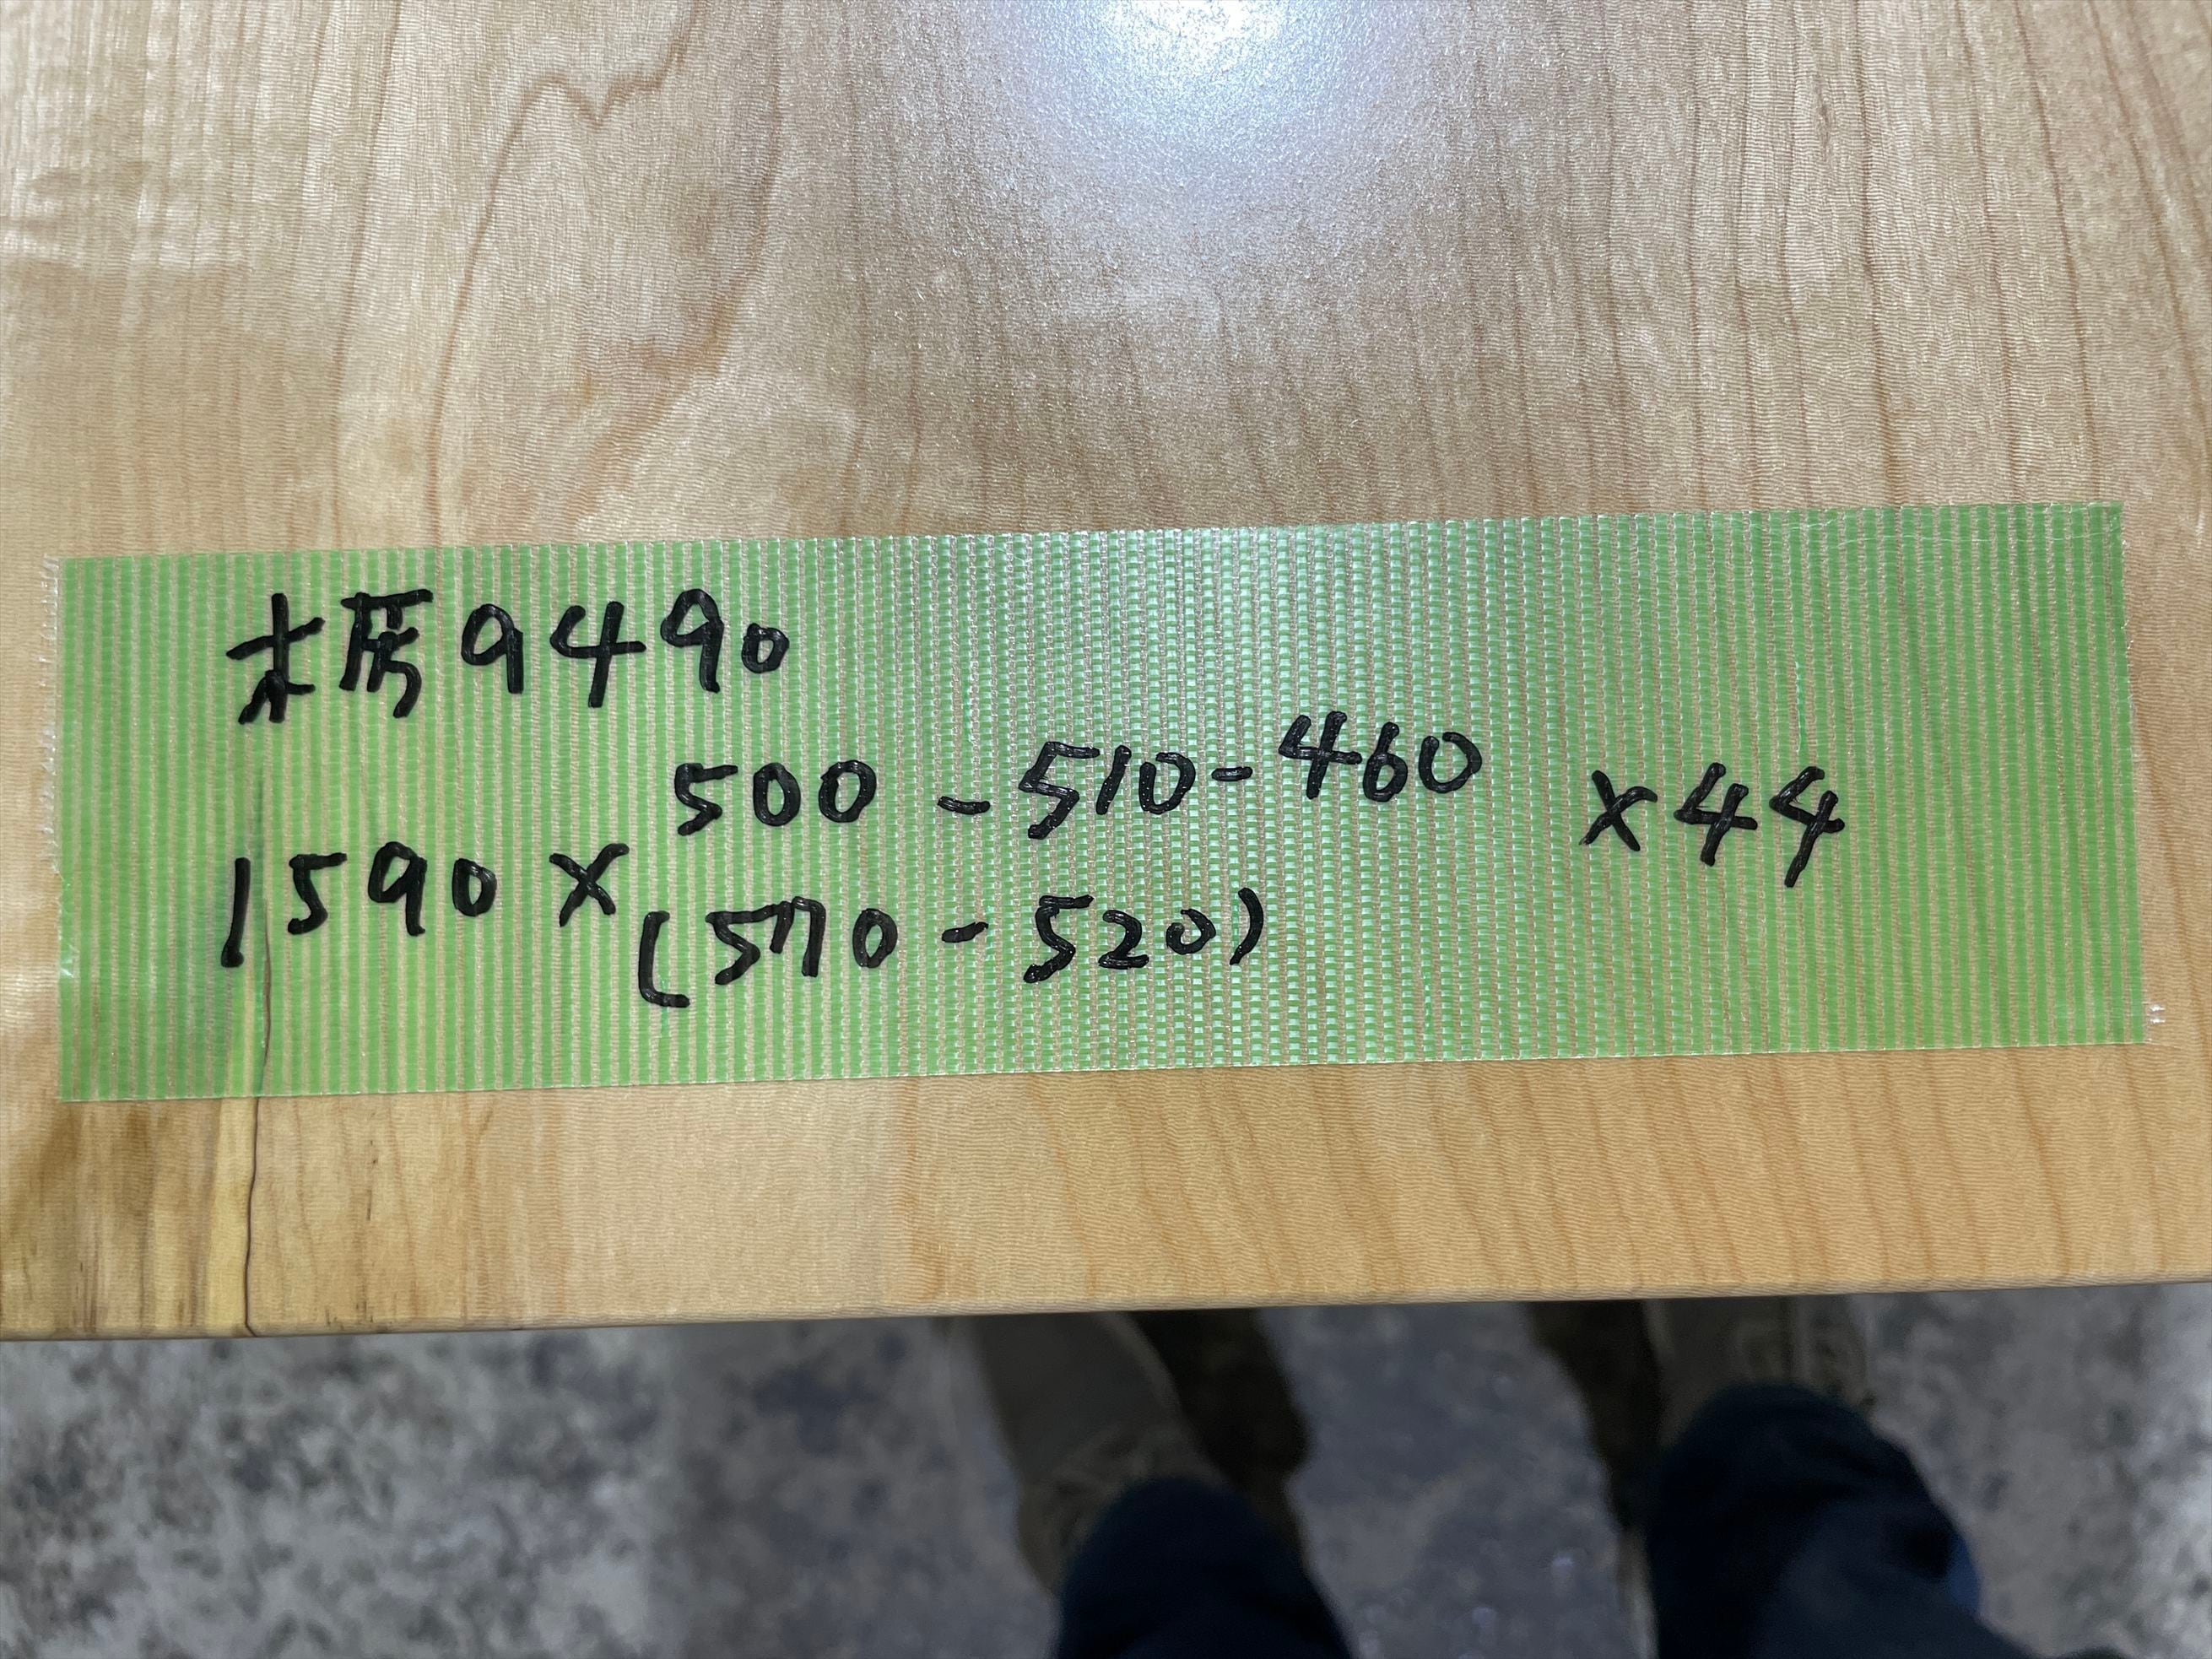 木房9490
1590×500-510-460×44
(570-520)